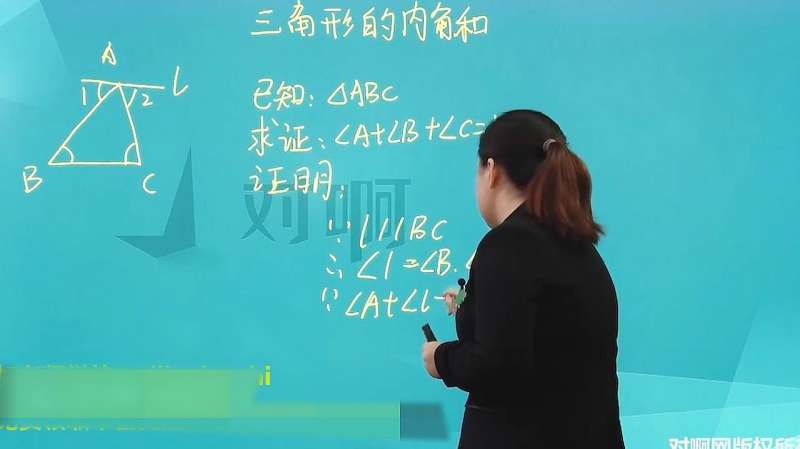 三角形的内角和
A
1 2 l
B C
已知: △ABC
求证: ∠A+∠B+∠C=
证明:
∵ l//BC
∴ ∠1=∠B.∠
∵ ∠A+∠1
对啊
对啊网版权所